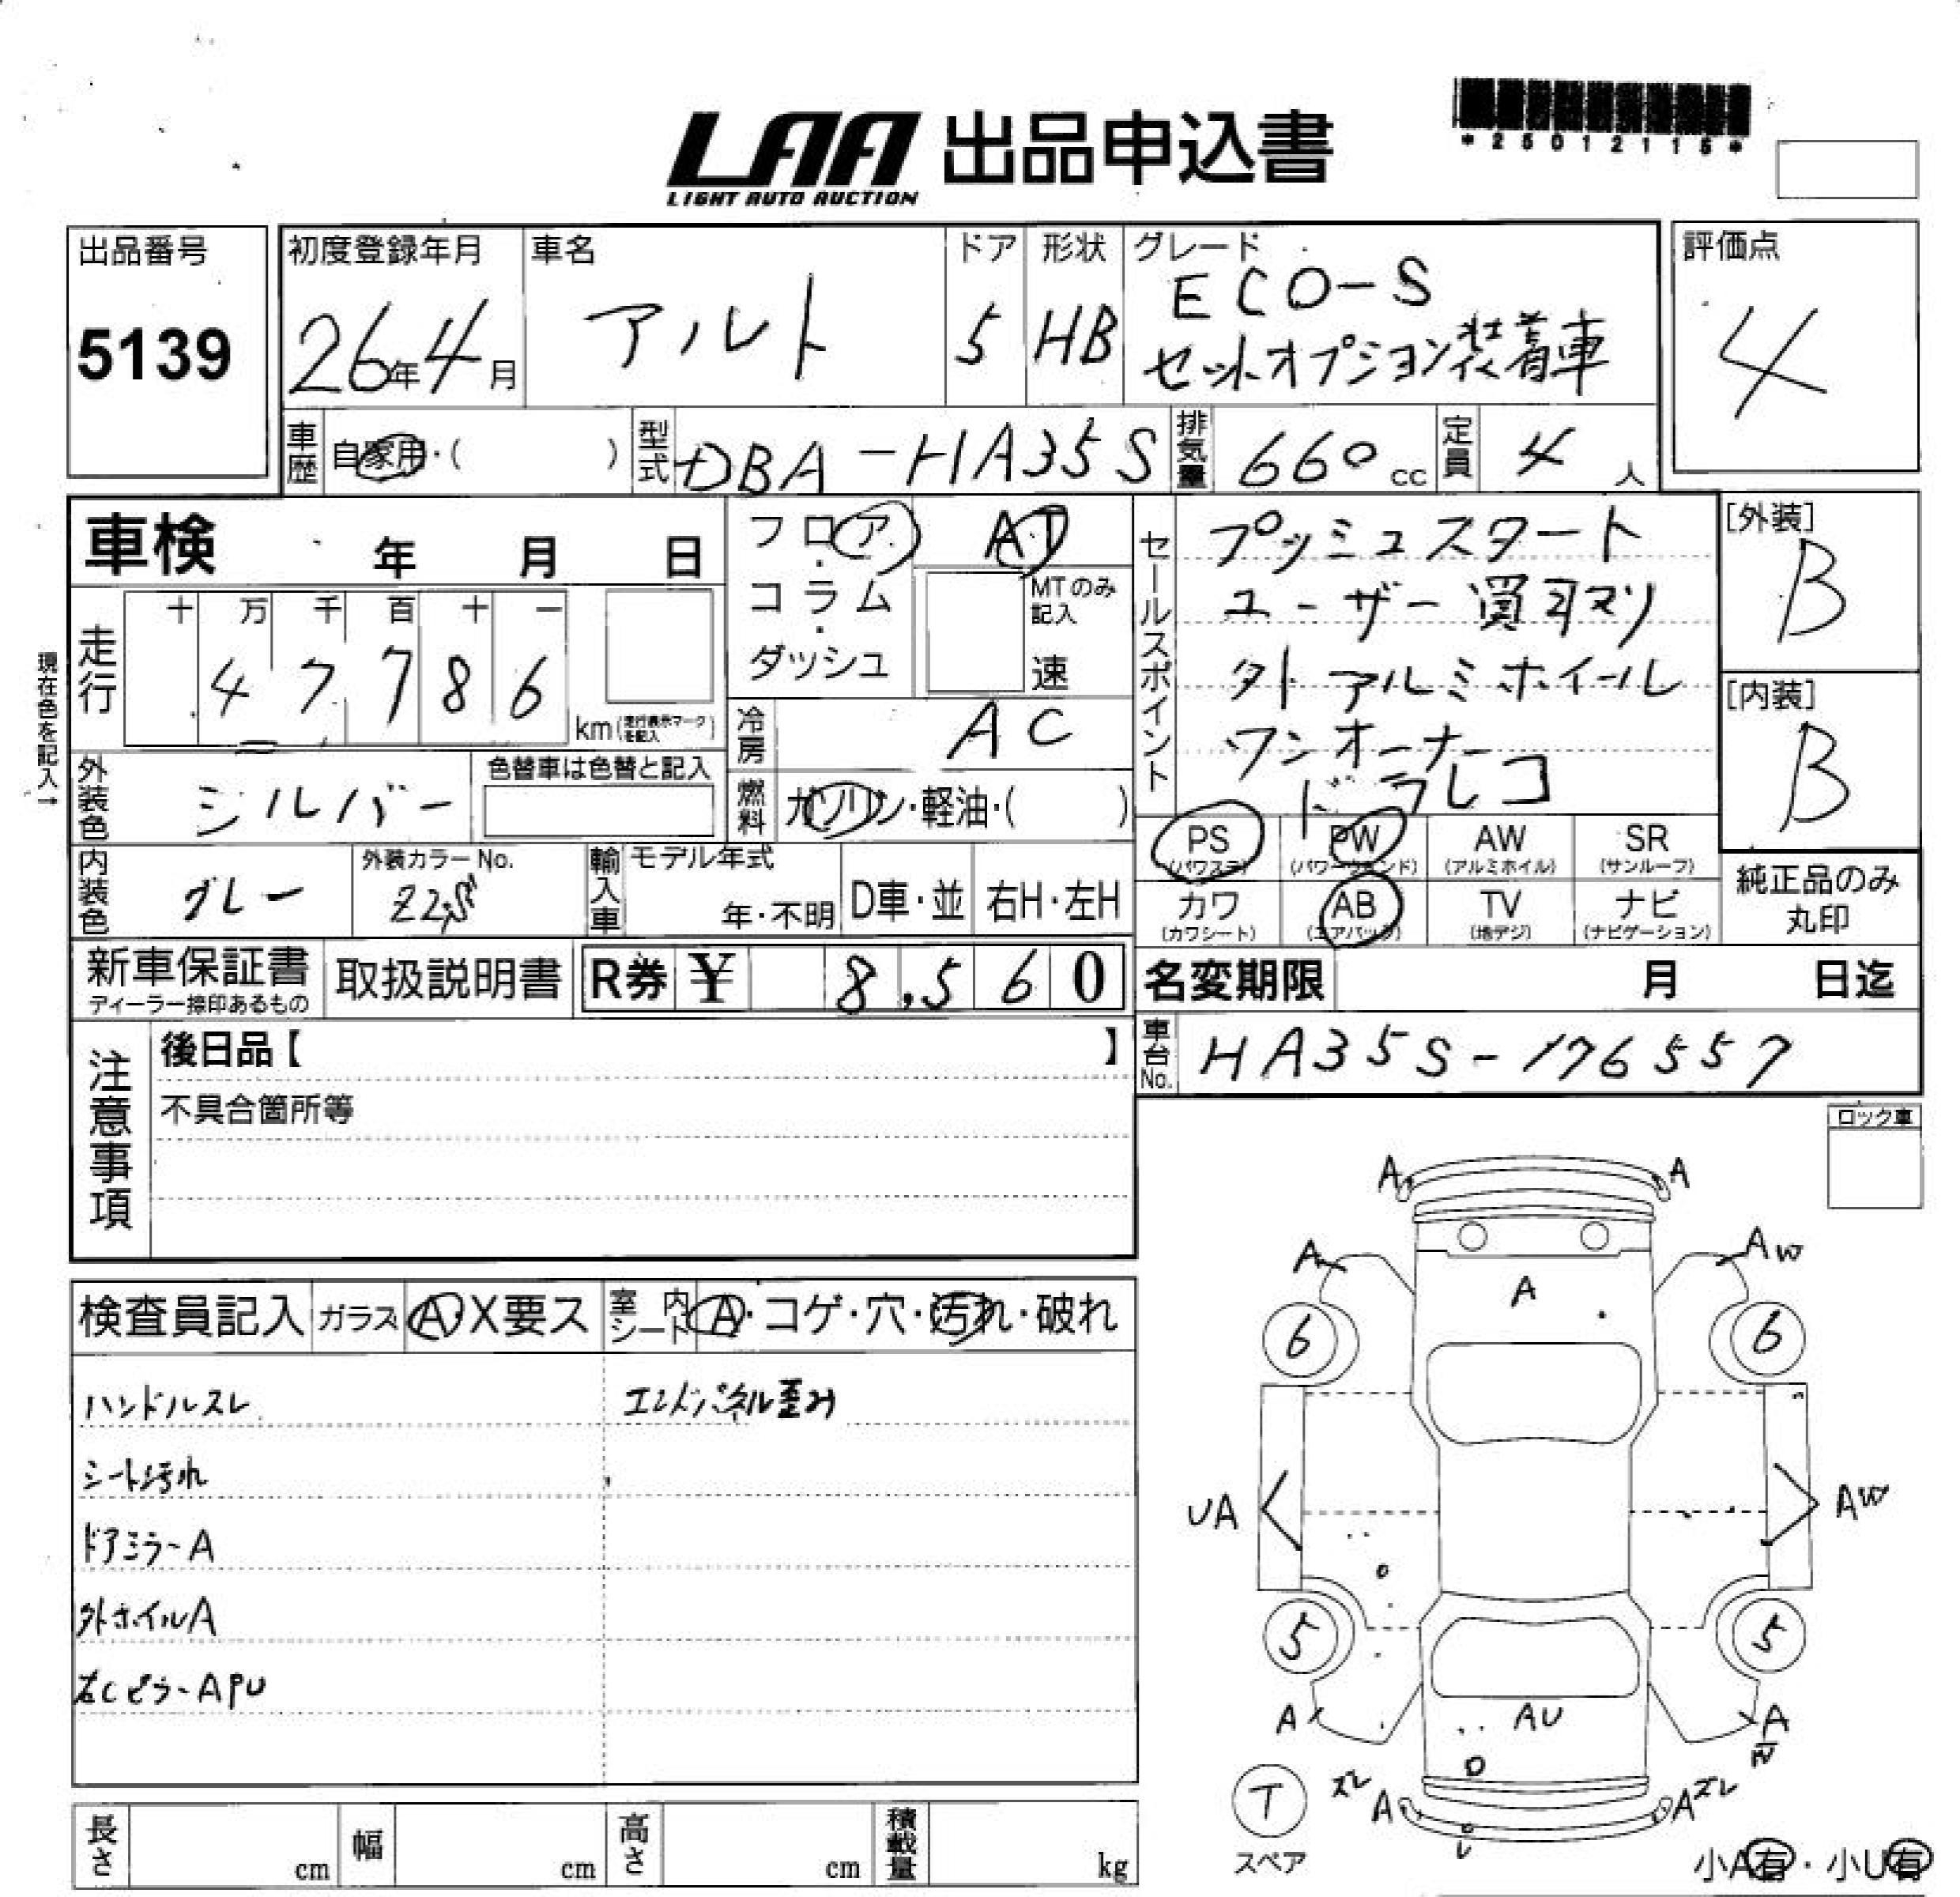 LAA 出品申込書
LIGHT AUTO AUCTION
*25012115*
出品番号
5139
初度登録年月
26年4月
車名
アルト
ドア
5
形状
HB
グレード
ECO-S
セットオプション装着車
評価点
4
車歴
自家用・( )
型式
DBA-HA35S
排気量
660cc
定員
4人
車検 年 月 日
フロア・コラム・ダッシュ
AT
MTのみ記入
速
走行
十 万 千 百 十 一
47786
km(走行表示マークを記入)
現在色を記入→
冷房
AC
外装色
シルバー
色替車は色替と記入
燃料
ガソリン・軽油・( )
セールスポイント
プッシュスタート
ユーザー買取マリ
外アルミホイール
ワンオーナー
ドラレコ
[外装]
B
[内装]
B
PS (パワステ)
PW (パワーウィンド)
AW (アルミホイル)
SR (サンルーフ)
カワ (カワシート)
AB (エアバッグ)
TV (地デジ)
ナビ (ナビゲーション)
純正品のみ丸印
内装色
グレー
外装カラーNo.
Z2S
輸入車
モデル年式
年・不明
D車・並
右H・左H
新車保証書
ディーラー捺印あるもの
取扱説明書
R券 ¥ 8,560
名変期限 月 日迄
車台No.
HA35S-176557
注意事項
後日品【 】
不具合箇所等
ロック車
検査員記入
ガラス
A・X要ス
室内シート
A・コゲ・穴・汚れ・破れ
ハンドルスレ
エンドパネル歪み
シート汚れ
ドアミラーA
外ホイルA
右CピラーAPU
A A
A AW
A
6 6
UA AW
5 5
A AU A
W
T ズレ A A ズレ
スペア
小A有・小U有
長さ cm
幅 cm
高さ cm
積載量 kg